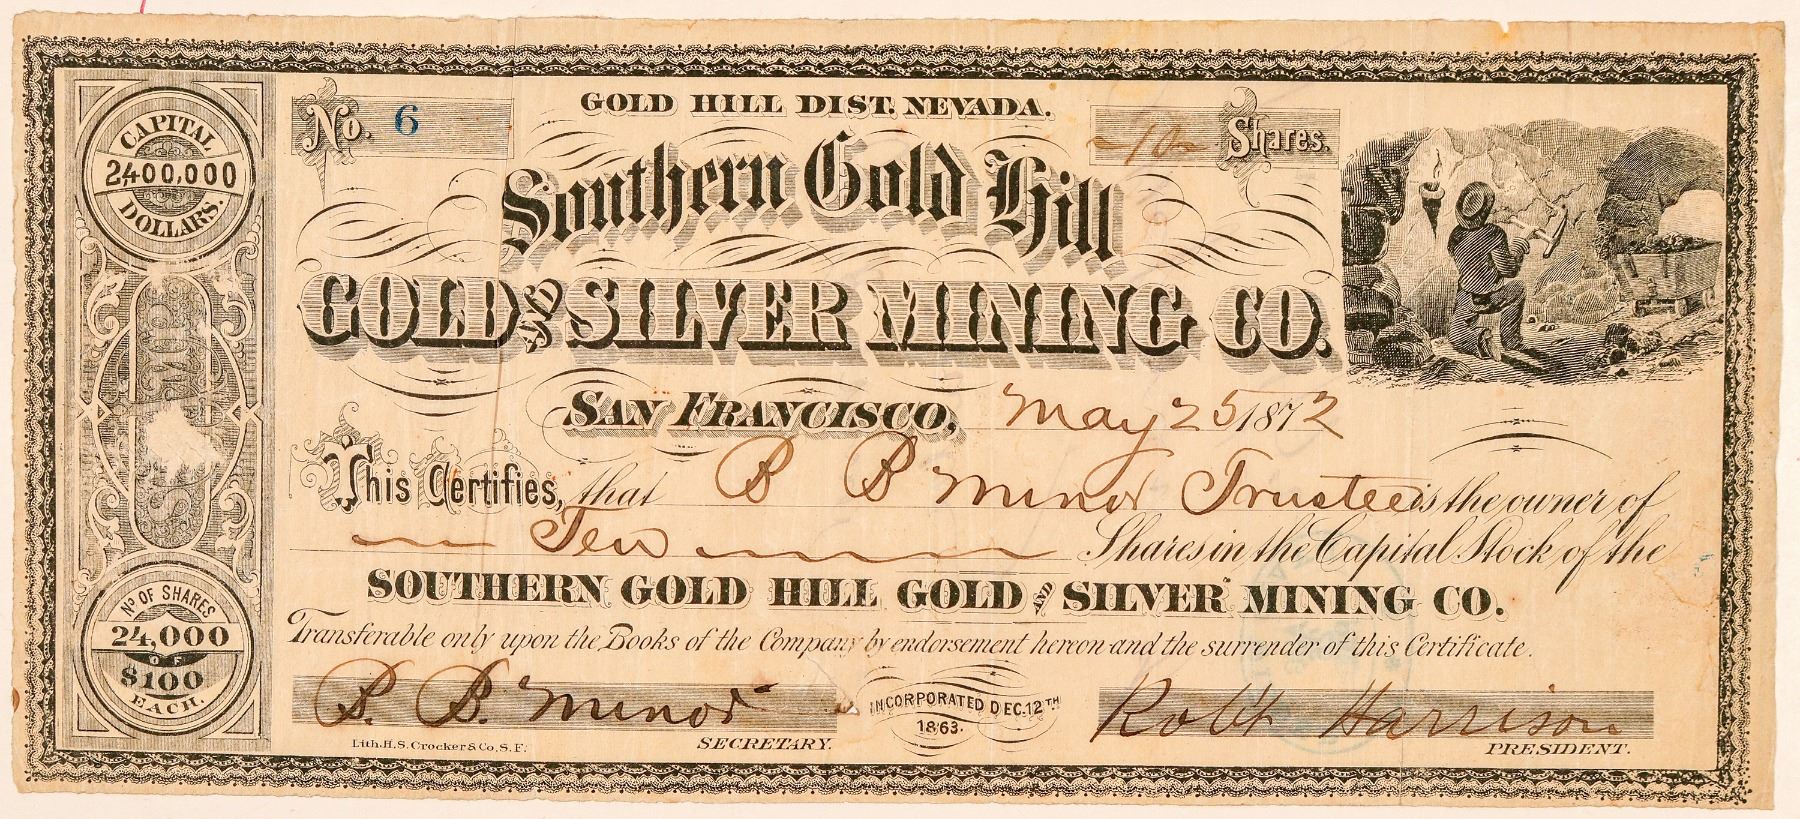 No. 6
GOLD HILL DIST. NEVADA.
10 Shares.
Southern Gold Hill
GOLD AND SILVER MINING CO.
SAN FRANCISCO, May 25 1872
This Certifies, that B B Minor Trustee is the owner of
Ten Shares in the Capital Stock of the
SOUTHERN GOLD HILL GOLD AND SILVER MINING CO.
Transferable only upon the Books of the Company by endorsement hereon and the surrender of this Certificate.
B. B. Minor
SECRETARY.
INCORPORATED DEC. 12TH
1863.
Robt Harrison
PRESIDENT.
Lith. H. S. Crocker & Co. S. F.
CAPITAL
2,400,000
DOLLARS.
No OF SHARES
24,000
OF
$100
EACH.